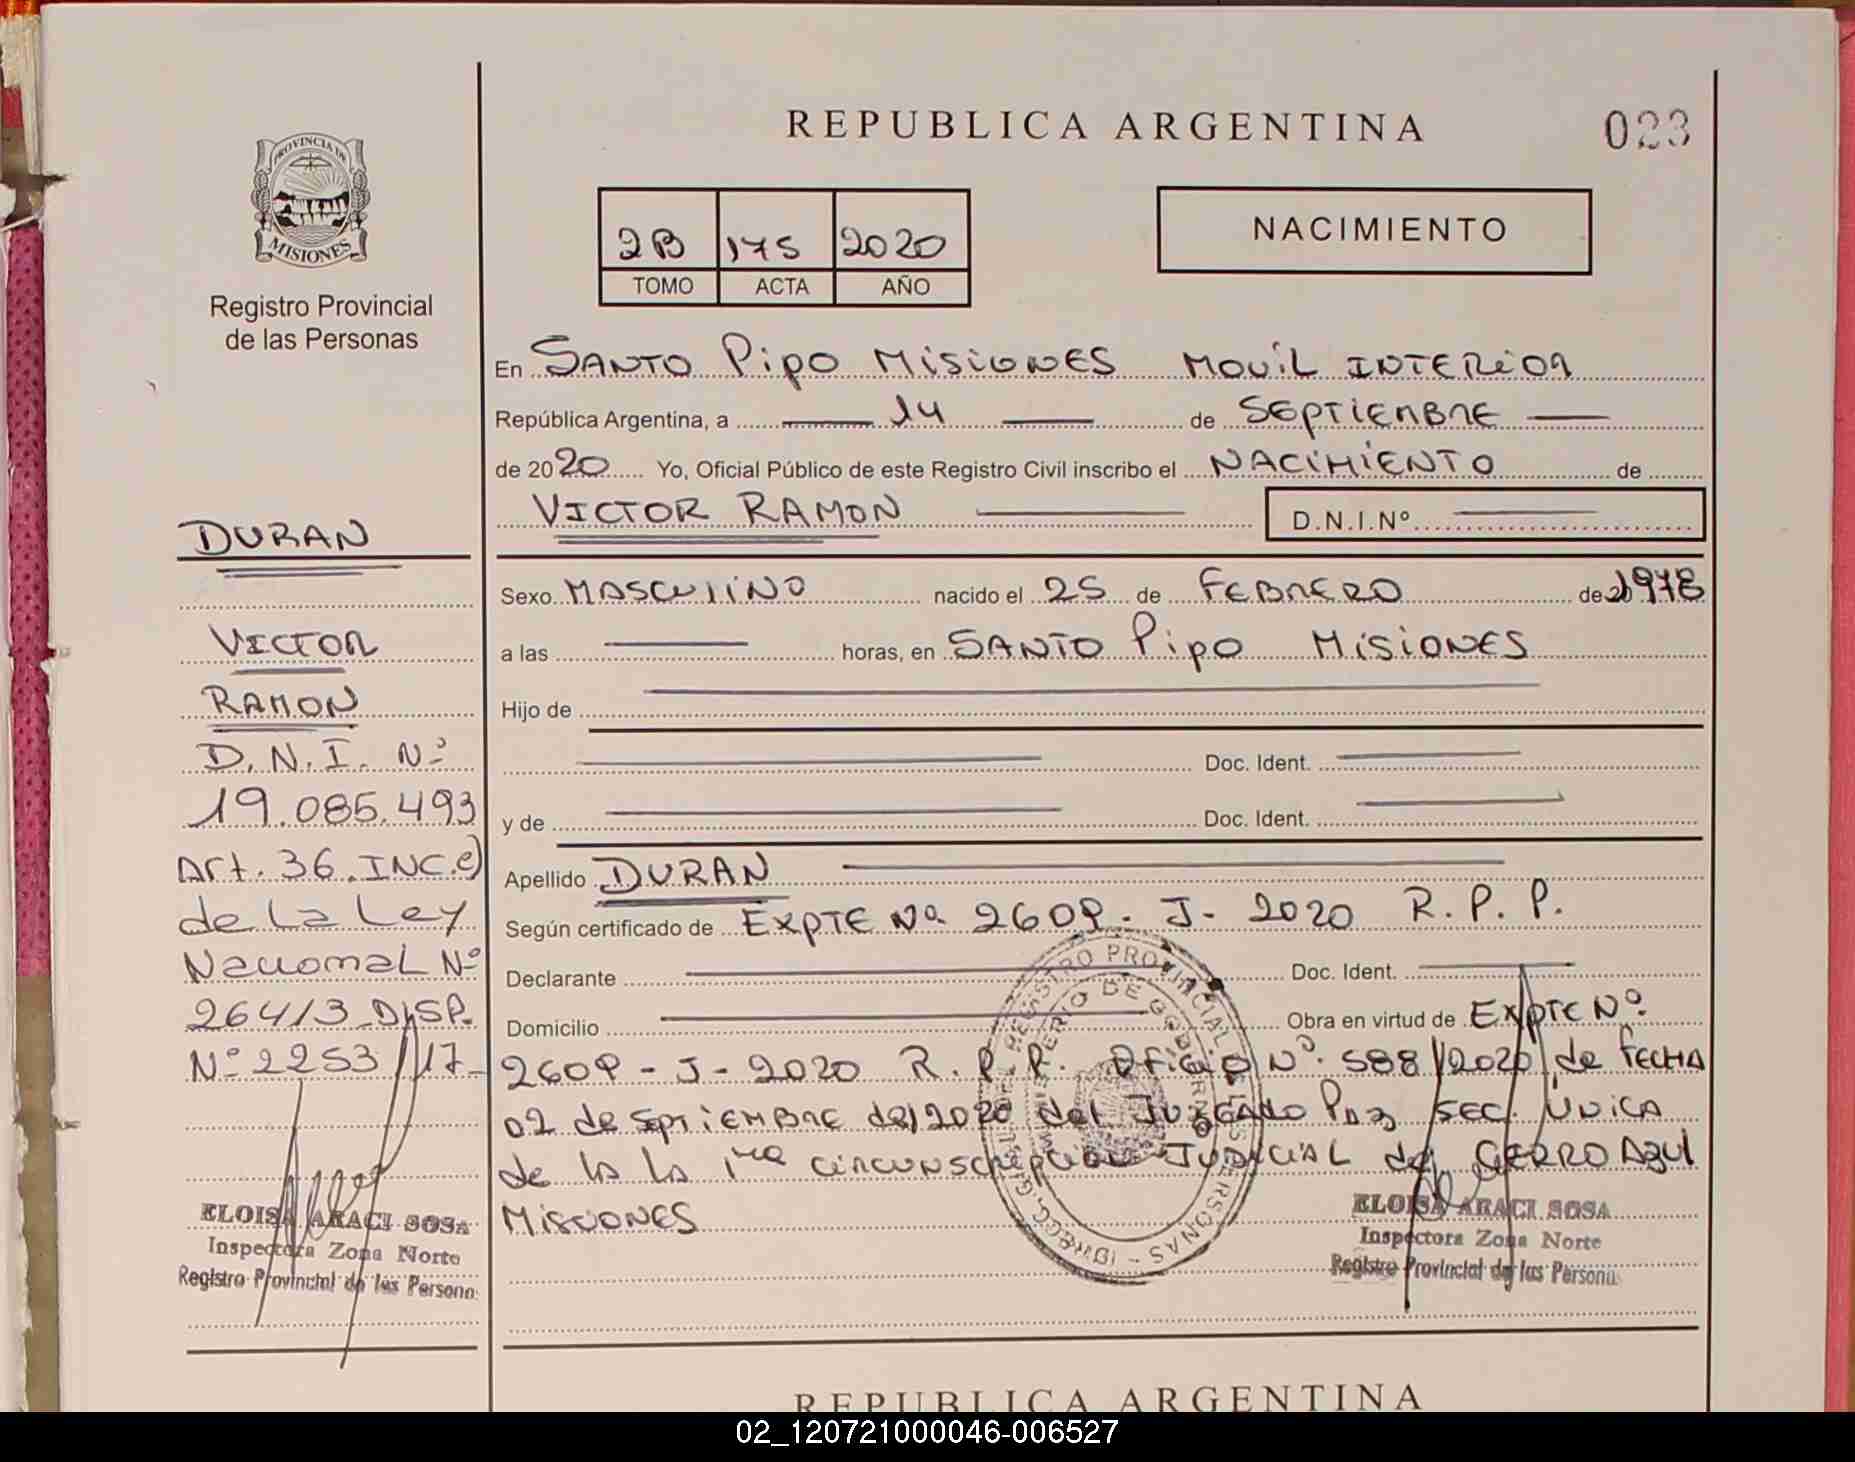 REPUBLICA ARGENTINA
023
PROVINCIA DE
MISIONES
Registro Provincial
de las Personas
2B 175 2020
TOMO ACTA AÑO
NACIMIENTO
En SANTO PIPO MISIONES MOVIL INTERIOR
República Argentina, a 14 de SEPTIEMBRE
de 2020 Yo, Oficial Público de este Registro Civil inscribo el NACIMIENTO de
VICTOR RAMON D.N.I.Nº
Sexo MASCULINO nacido el 25 de FEBRERO de 1978
a las horas, en SANTO PIPO MISIONES
Hijo de
Doc. Ident.
y de Doc. Ident.
Apellido DURAN
Según certificado de EXPTE Nº 2609 - J - 2020 R.P.P.
Declarante Doc. Ident.
Domicilio Obra en virtud de EXPTE Nº
2609 - J - 2020 R.P.P. OFICIO Nº 588/2020 de FECHA
02 de SEPTIEMBRE del 2020 del JUZGADO PAZ SEC. UNICA
de la la 1ra CIRCUNSCRIPCION JUDICIAL de CERRO AZUL
MISIONES
DURAN
VICTOR
RAMON
D.N.I. Nº
19.085.493
Art. 36 INC. c)
de La Ley
Nacional Nº
26413 DISP.
Nº 2253/17
ELOISA ARACI SOSA
Inspectora Zona Norte
Registro Provincial de las Persona
ELOISA ARACI SOSA
Inspectora Zona Norte
Registro Provincial de las Persona
REGISTRO PROVINCIAL DE LAS PERSONAS
MINISTERIO DE GOBIERNO
REPUBLICA ARGENTINA
02_120721000046-006527